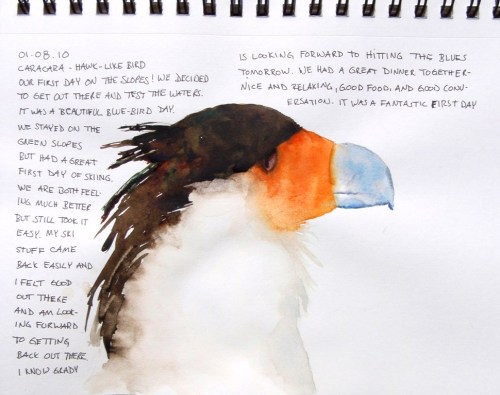 01.08.10
CARACARA - HAWK-LIKE BIRD
OUR FIRST DAY ON THE SLOPES! WE DECIDED
TO GET OUT THERE AND TEST THE WATERS.
IT WAS A BEAUTIFUL BLUE-BIRD DAY.
WE STAYED ON THE
GREEN SLOPES
BUT HAD A GREAT
FIRST DAY OF SKIING.
WE ARE BOTH FEEL-
ING MUCH BETTER
BUT STILL TOOK IT
EASY. MY SKI
STUFF CAME
BACK EASILY AND
I FELT GOOD
OUT THERE
AND AM LOOK-
ING FORWARD
TO GETTING
BACK OUT THERE.
I KNOW GRADY
IS LOOKING FORWARD TO HITTING THE BLUES
TOMORROW. WE HAD A GREAT DINNER TOGETHER-
NICE AND RELAXING, GOOD FOOD, AND GOOD CONV-
ERSATION. IT WAS A FANTASTIC FIRST DAY